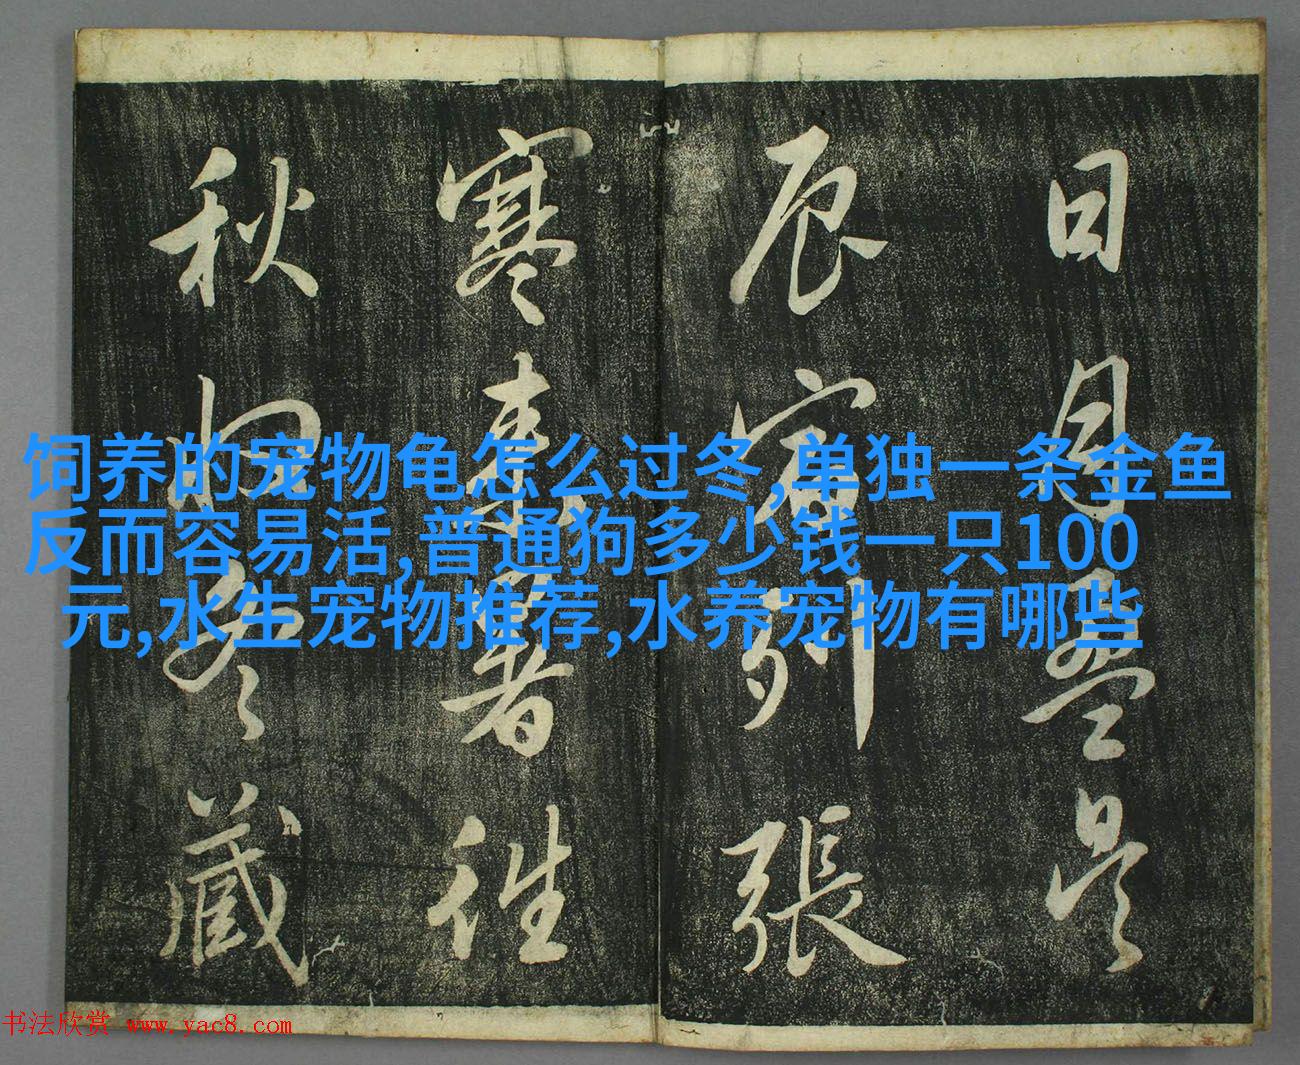 日月盈昃
辰宿列張
寒来暑往
秋收冬藏
饲养的宠物龟怎么过冬,单独一条金鱼
反而容易活,普通狗多少钱一只100
元,水生宠物推荐,水养宠物有哪些
书法欣赏 www.yac8.com